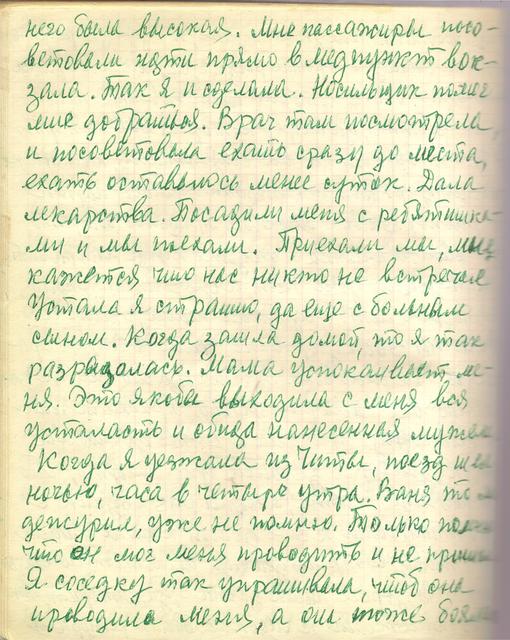 него была высокая. Мне пассажиры посо-
ветовали идти прямо в медпункт вок-
зала. Так я и сделала. Носильщик помог
мне добраться. Врач там посмотрела
и посоветовала ехать сразу до места,
ехать оставалось менее суток. Дала
лекарства. Посадили меня с ребятишка-
ми и мы поехали. Приехали мы, мне
кажется что нас никто не встречал
Устала я страшно, да еще с больным
сыном. Когда зашла домой, то я так
разрыдалась. Мама успокаивает ме-
ня. Это якобы выходила с меня вся
усталасть и обида нанесенная мужем
Когда я уезжала из Читы, поезд шел
ночью, часа в четыре утра. Ваня то
дежурил, уже не помню. Только помню
что он мог меня проводить и не пришел
Я соседку так упрашивала, чтоб она
проводила меня, а она тоже